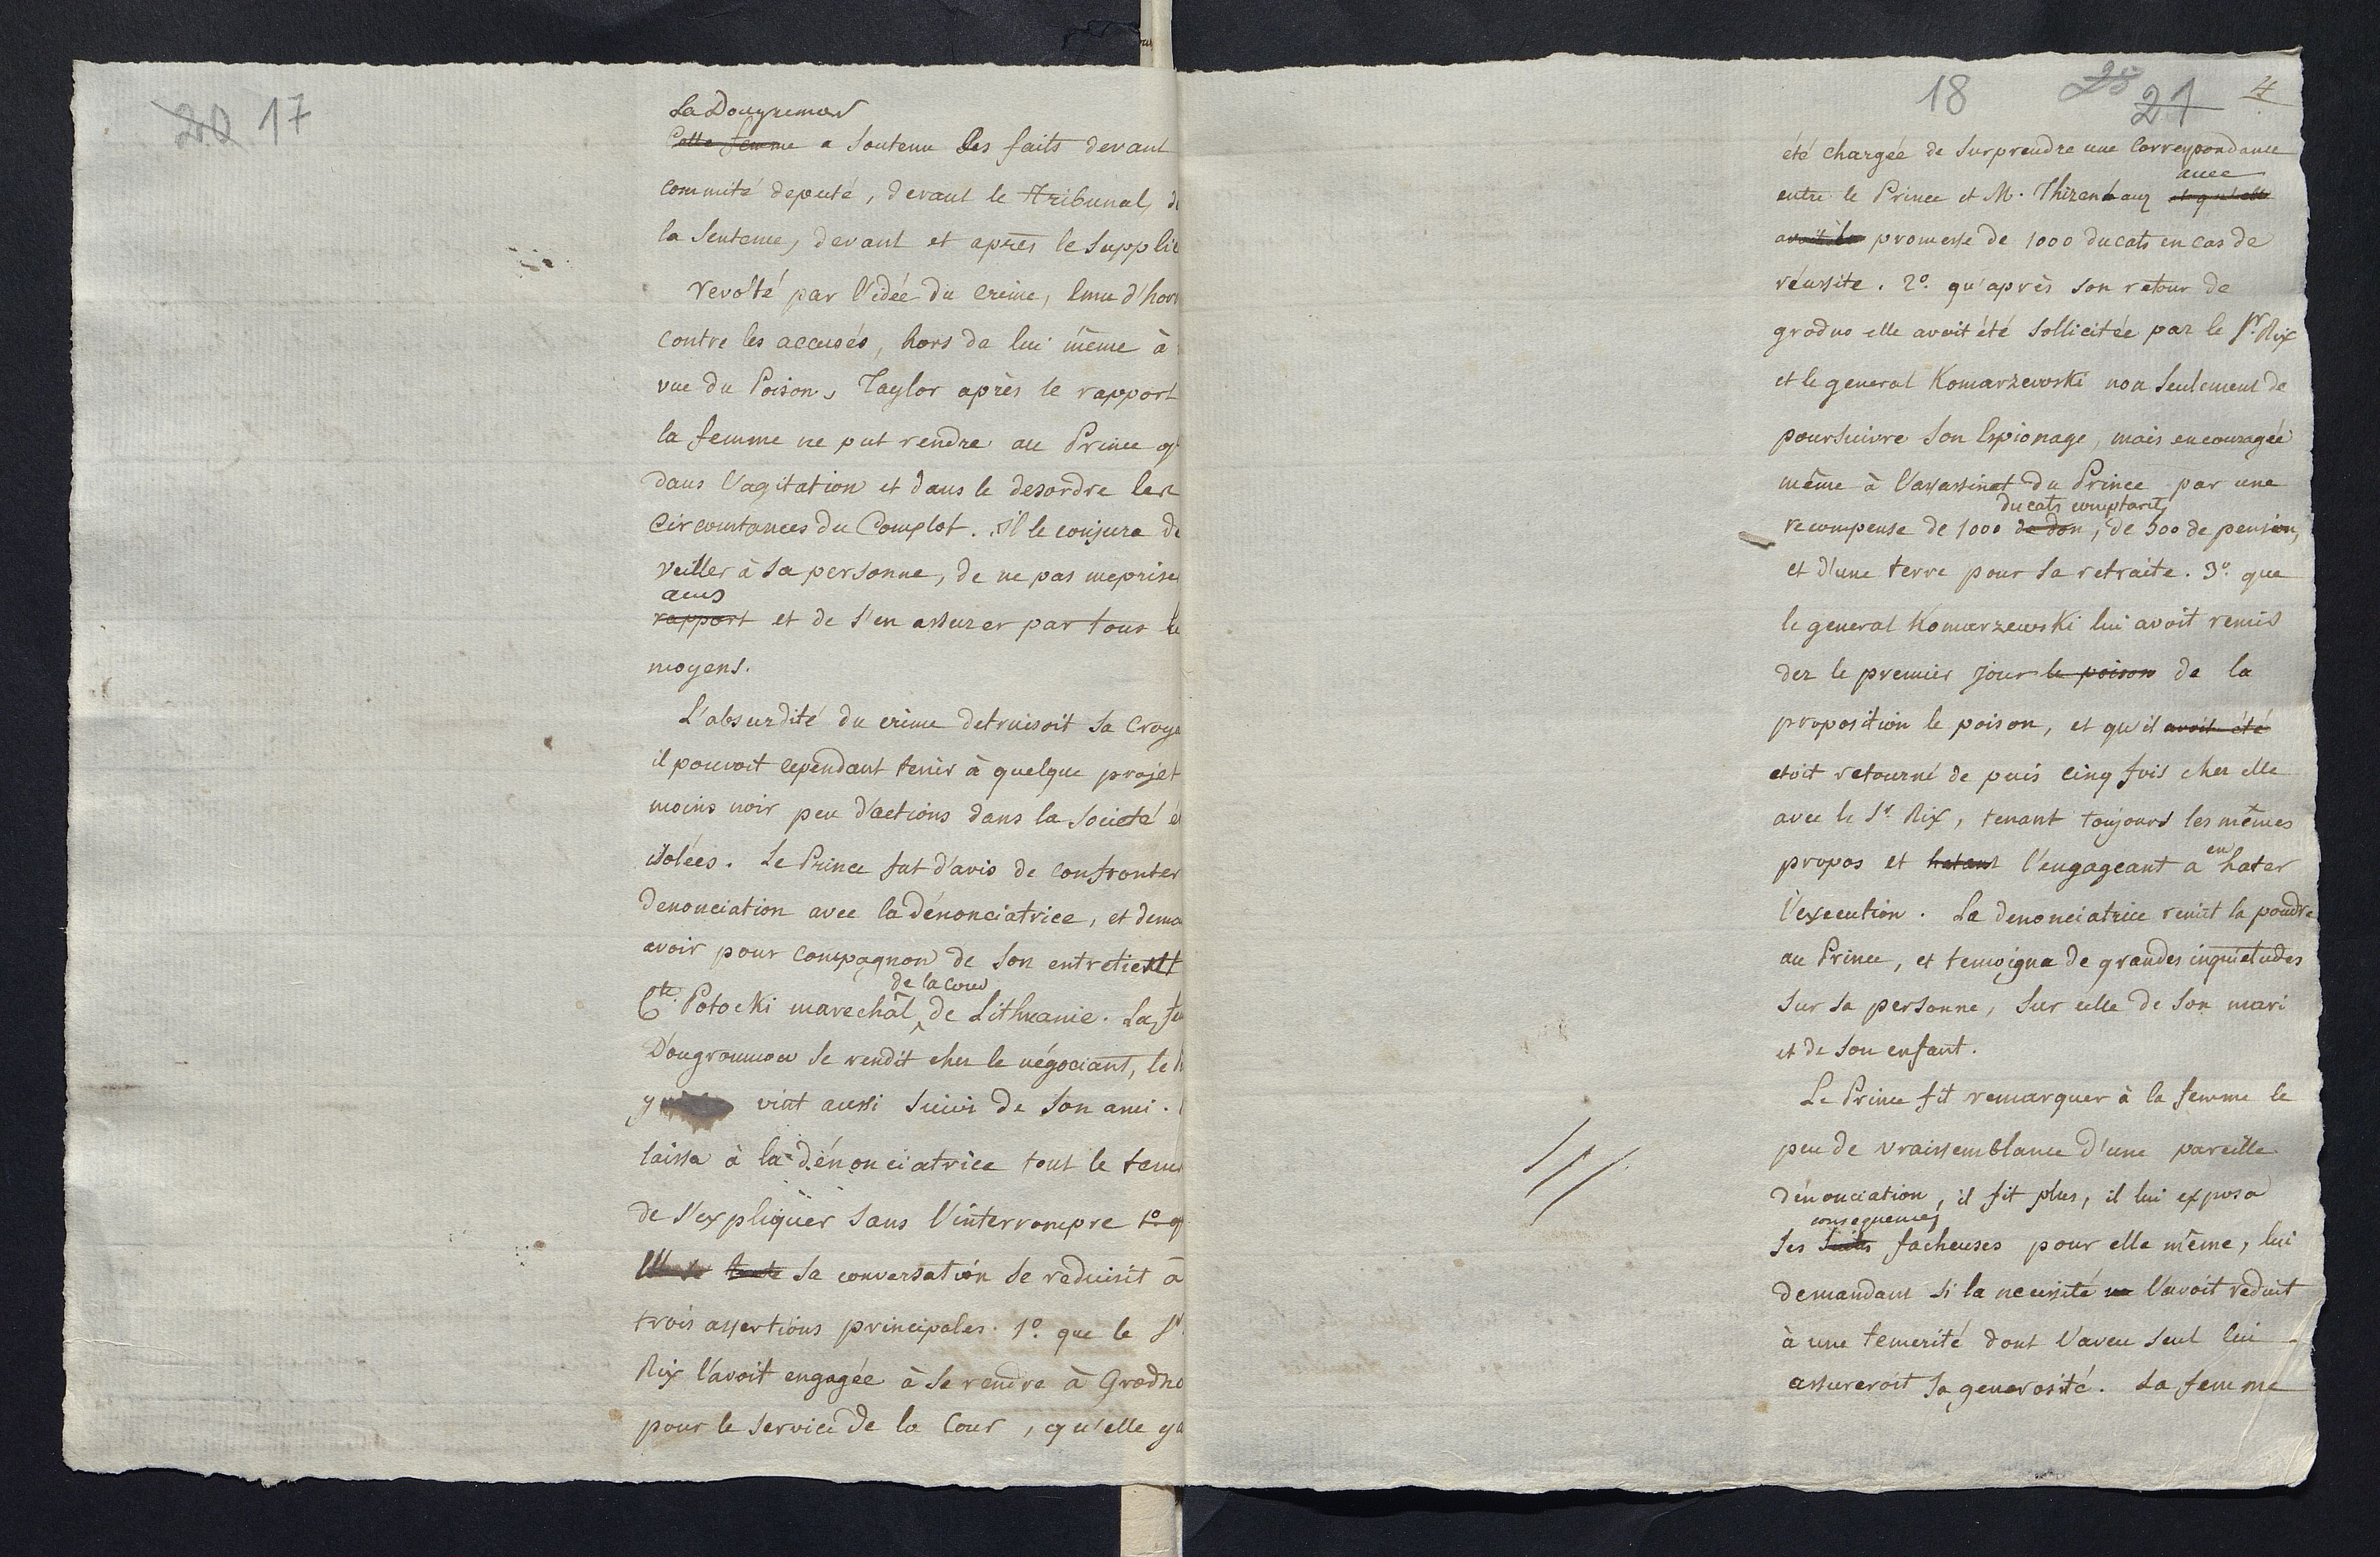 20 17
La Dougrumow
Cette femme a soutenu ses faits devant
committé deputé, devant le tribunal, d
la sentence, devant et après le supplic
revolté par l'idée du crime, emu d'hor
contre les accusés, hors de lui même à
vue du Poison, Taylor après le rapport
la femme ne put rendre au Prince q
dans l'agitation et dans le desordre les
Circonstances du Complot. Il le conjura de
veiller à sa personne, de ne pas meprise
avis
rapport et de s'en assurer par tous le
moyens.
L'absurdité du crime detruisoit sa Croya
il pouvoit cependant tenir à quelque projet
moins noir peu d'actions dans la Societé é
isolées. Le Prince fut d'avis de confronter
denonciation avec la dénonciatrice, et dema
avoir pour Compagnon de son entretien
de la cour
Cte. Potocki marechal de Lithuanie. La fe
Dougroumow se rendit chez le négociant, le
y vint aussi suivi de son ami.
laissa à la dénonciatrice tout le tems
de s'expliquer sans l'interrompre 1º q
toute sa conversation se reduisit à
trois assertions principales. 1º. que le Sr.
Rix l'avoit engagée à se rendre à Grodno
pour le service de la Cour, qu'elle y a
18 25 21 4
été chargée de surprendre une Correspondance
avec
entre le Prince et M. Thizenhauz et qu'elle
avoit la promesse de 1000 ducats en cas de
réussite. 2º. qu'après son retour de
grodno elle avoit été sollicitée par le Sr. Rix
et le general Komarzewski non seulement de
poursuivre son Espionage, mais encouragée
même à l'assassinat du Prince par une
ducats comptants
recompense de 1000 de don, de 500 de pension,
et d'une terre pour sa retraite. 3º. que
le general Komarzewski lui avoit remis
dez le premier jour le poison de la
proposition le poison, et qu'il avoit été
etoit retourné de puis cinq fois chez elle
avec le Sr. Rix, tenant toujours les mêmes
propos et hatant l'engageant a en hater
l'execution. La denonciatrice remit la poudre
au Prince, et temoigna de grandes inquietudes
sur sa personne, sur celle de son mari
et de son enfant.
Le Prince fit remarquer à la femme le
peu de vraissemblance d'une pareille
dénonciation, il fit plus, il lui exposa
consequences
ses suites facheuses pour elle même, lui
demandant si la necessité ne l'avoit reduit
à une temerité dont l'aveu seul lui
assureroit sa generosité. La femme